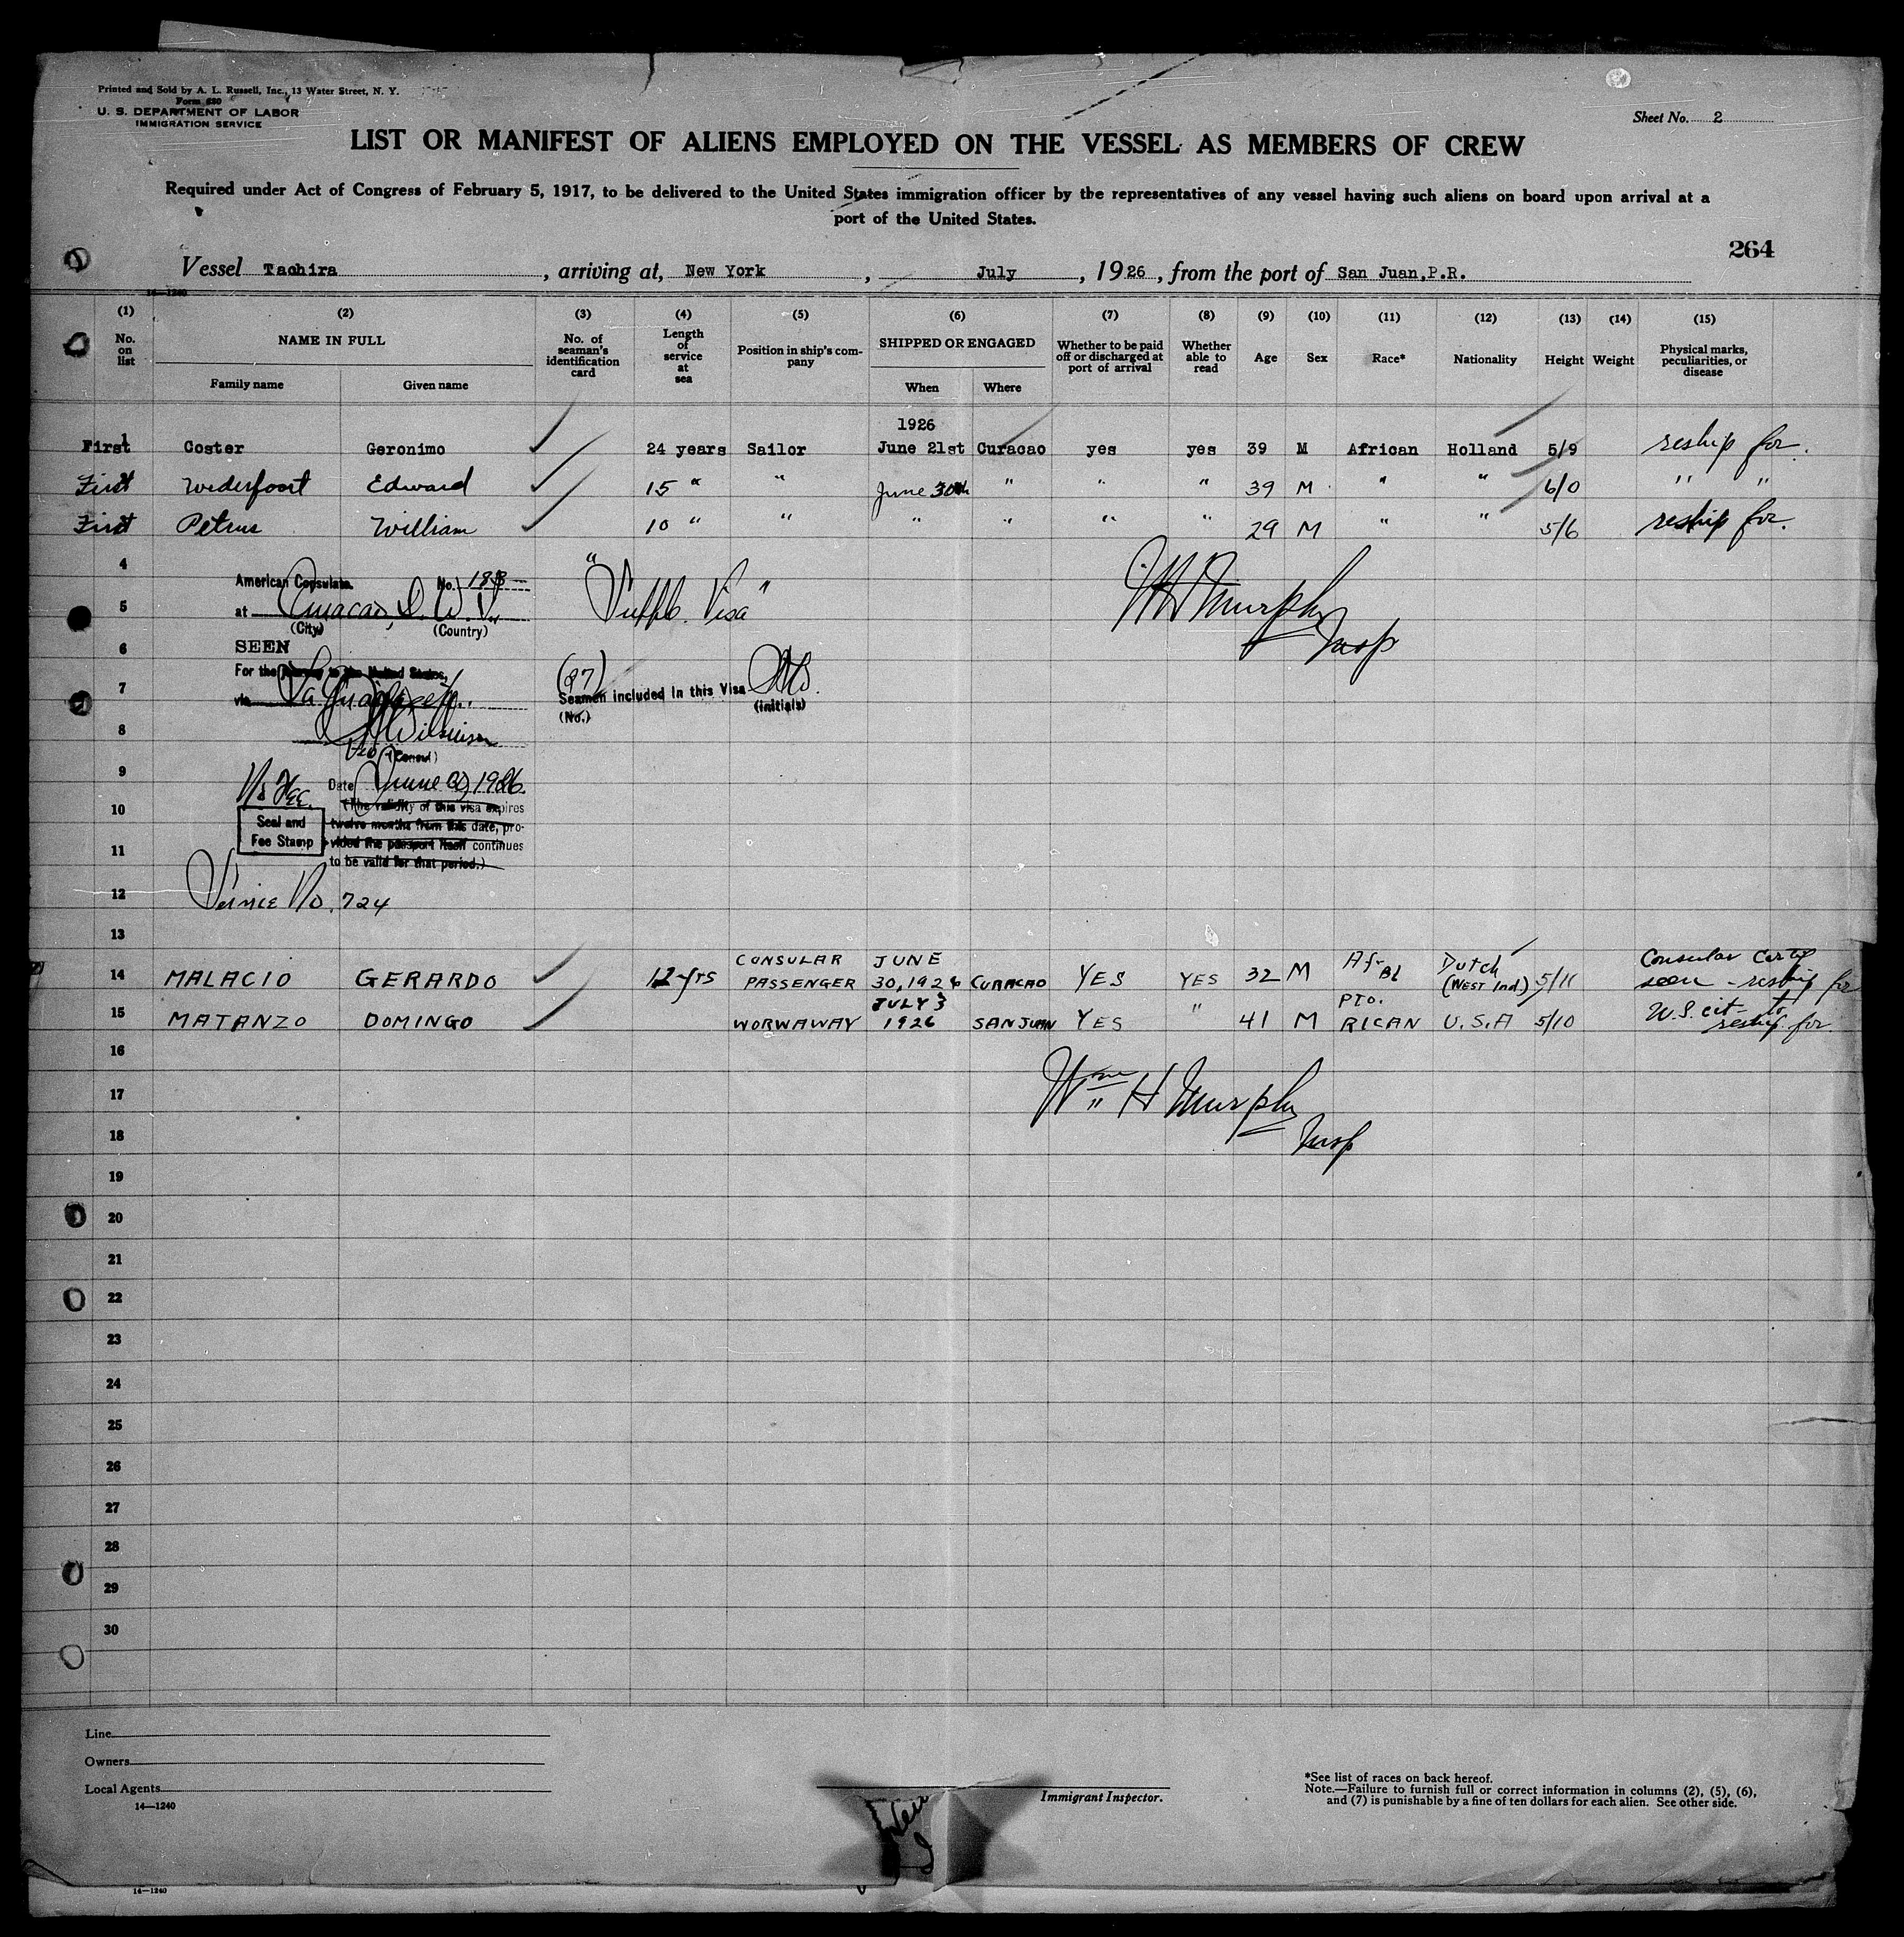 Printed and Sold by A. L. Russell, Inc., 13 Water Street, N. Y.
Form 680
U. S. DEPARTMENT OF LABOR
IMMIGRATION SERVICE
Sheet No. 2
LIST OR MANIFEST OF ALIENS EMPLOYED ON THE VESSEL AS MEMBERS OF CREW
Required under Act of Congress of February 5, 1917, to be delivered to the United States immigration officer by the representatives of any vessel having such aliens on board upon arrival at a
port of the United States.
264
Vessel Tachira, arriving at, New York, July, 1926, from the port of San Juan,P.R.
14—1240
(1) (2) (3) (4) (5) (6) (7) (8) (9) (10) (11) (12) (13) (14) (15)
No. on list NAME IN FULL No. of seaman's identification card Length of service at sea Position in ship's company SHIPPED OR ENGAGED Whether to be paid off or discharged at port of arrival Whether able to read Age Sex Race* Nationality Height Weight Physical marks, peculiarities, or disease
Family name Given name When Where
1926
First 1 Coster Geronimo 24 years Sailor June 21st Curacao yes yes 39 M African Holland 5/9 reship for.
First Wederfoort Edward 15 " " June 30th " " " 39 M " " 6/0 " "
First Petrus William 10 " " " " " " 29 M " " 5/6 reship for.
4
American Consulate. No. 183
"Suppl. Visa"
W H Murphy
Insp
5
at Curacao, D. W. I.
(City) (Country)
6
SEEN
For the journey to the United States,
7
via La Guaira
(97)
Seamen included in this Visa
(No.) (initials)
8
Wilkinson
Vice (Consul)
9
No Fee. Date June 30, 1926.
10
(The validity of this visa expires
Seal and twelve months from this date, pro-
11
Fee Stamp vided the passport itself continues
to be valid for that period.)
12
Service No. 724
13
14 MALACIO GERARDO 12 yrs CONSULAR PASSENGER JUNE 30, 1926 CURACAO YES YES 32 M Af-Bl Dutch (WEST Ind.) 5/11 Consular Certif seen - reship for
15 MATANZO DOMINGO WORWAWAY JULY 3 1926 SAN JUAN YES " 41 M PTO. RICAN U.S.A 5/10 U.S. cit - to reship for
16
17
Wm H Murphy
18
Insp
19
20
21
22
23
24
25
26
27
28
29
30
Line
Owners
Local Agents
14—1240
Immigrant Inspector.
*See list of races on back hereof.
Note.—Failure to furnish full or correct information in columns (2), (5), (6),
and (7) is punishable by a fine of ten dollars for each alien. See other side.
14—1240